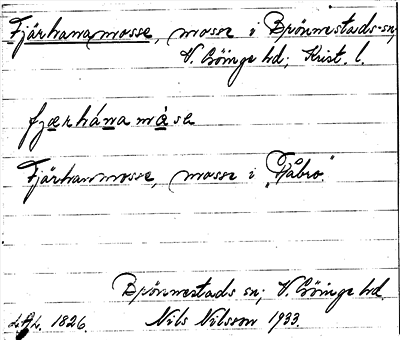 Fjärhanamosse, mosse i Brönnestads sn,
V. Göinge hd; Krist. l.
fjærhána måsa
Fjärhanmosse, mosse i „Tåbro.”
Brönnestads sn; V. Göinge hd.
L.A.L. 1826. Nils Nilsson 1933.